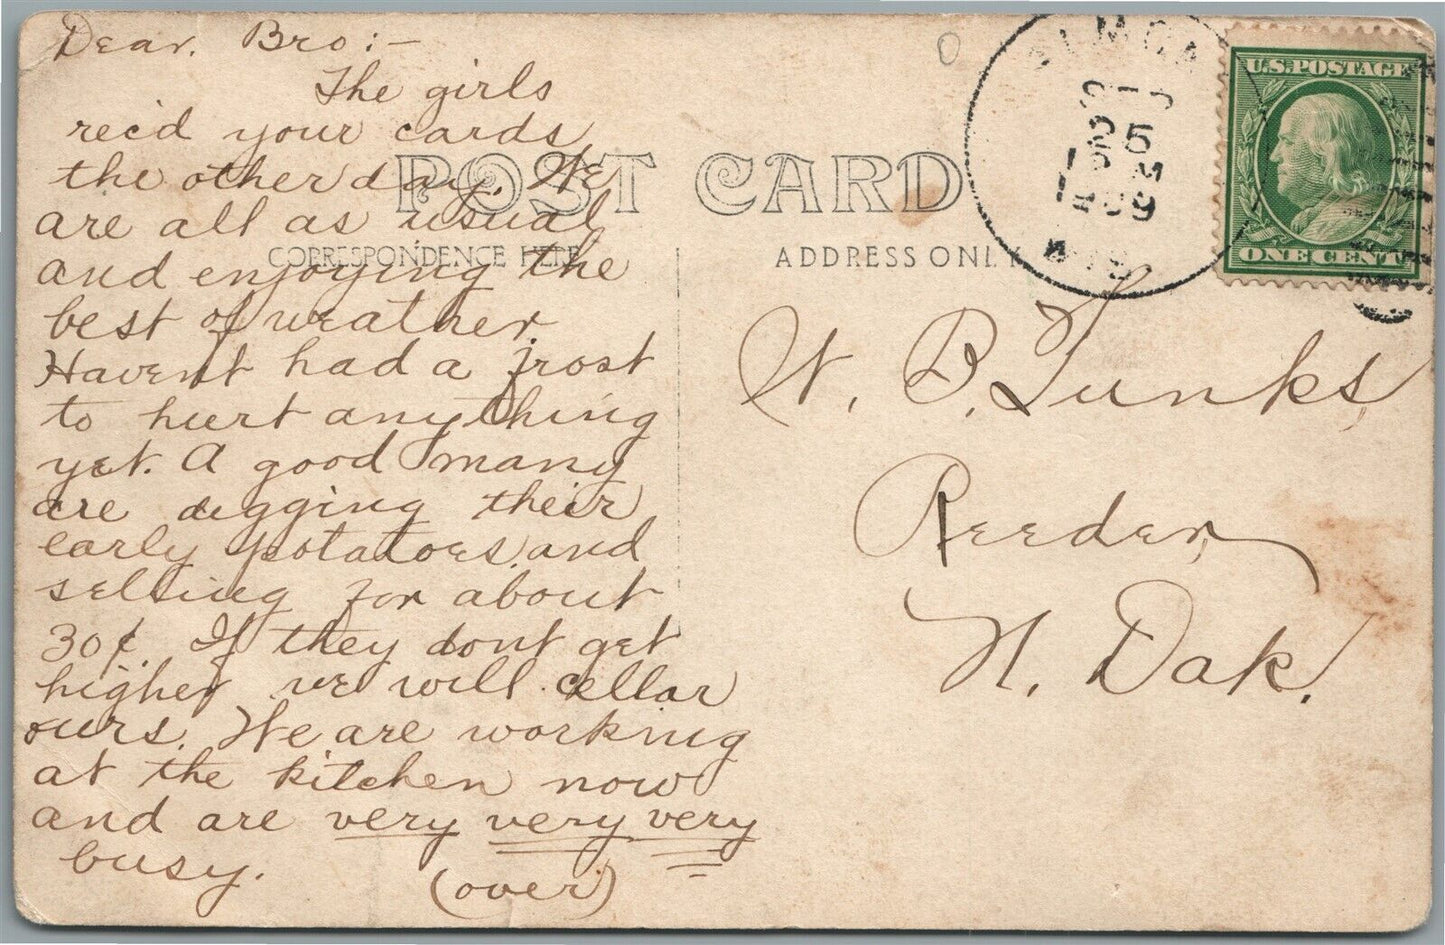 Dear. Bro:-
The girls
rec'd your cards
the other day. We
are all as usual
and enjoying the
best of weather.
Havent had a frost
to hurt anything
yet. A good many
are digging their
early potatoes, and
selling for about
30¢. If they dont get
higher we will cellar
ours. We are working
at the kitchen now
and are very very very
busy.
(over)
POST CARD
CORRESPONDENCE HERE
ADDRESS ONLY
25
1909
WIS
U.S. POSTAGE
ONE CENT
W. B. Tunks,
Reeder,
N. Dak.